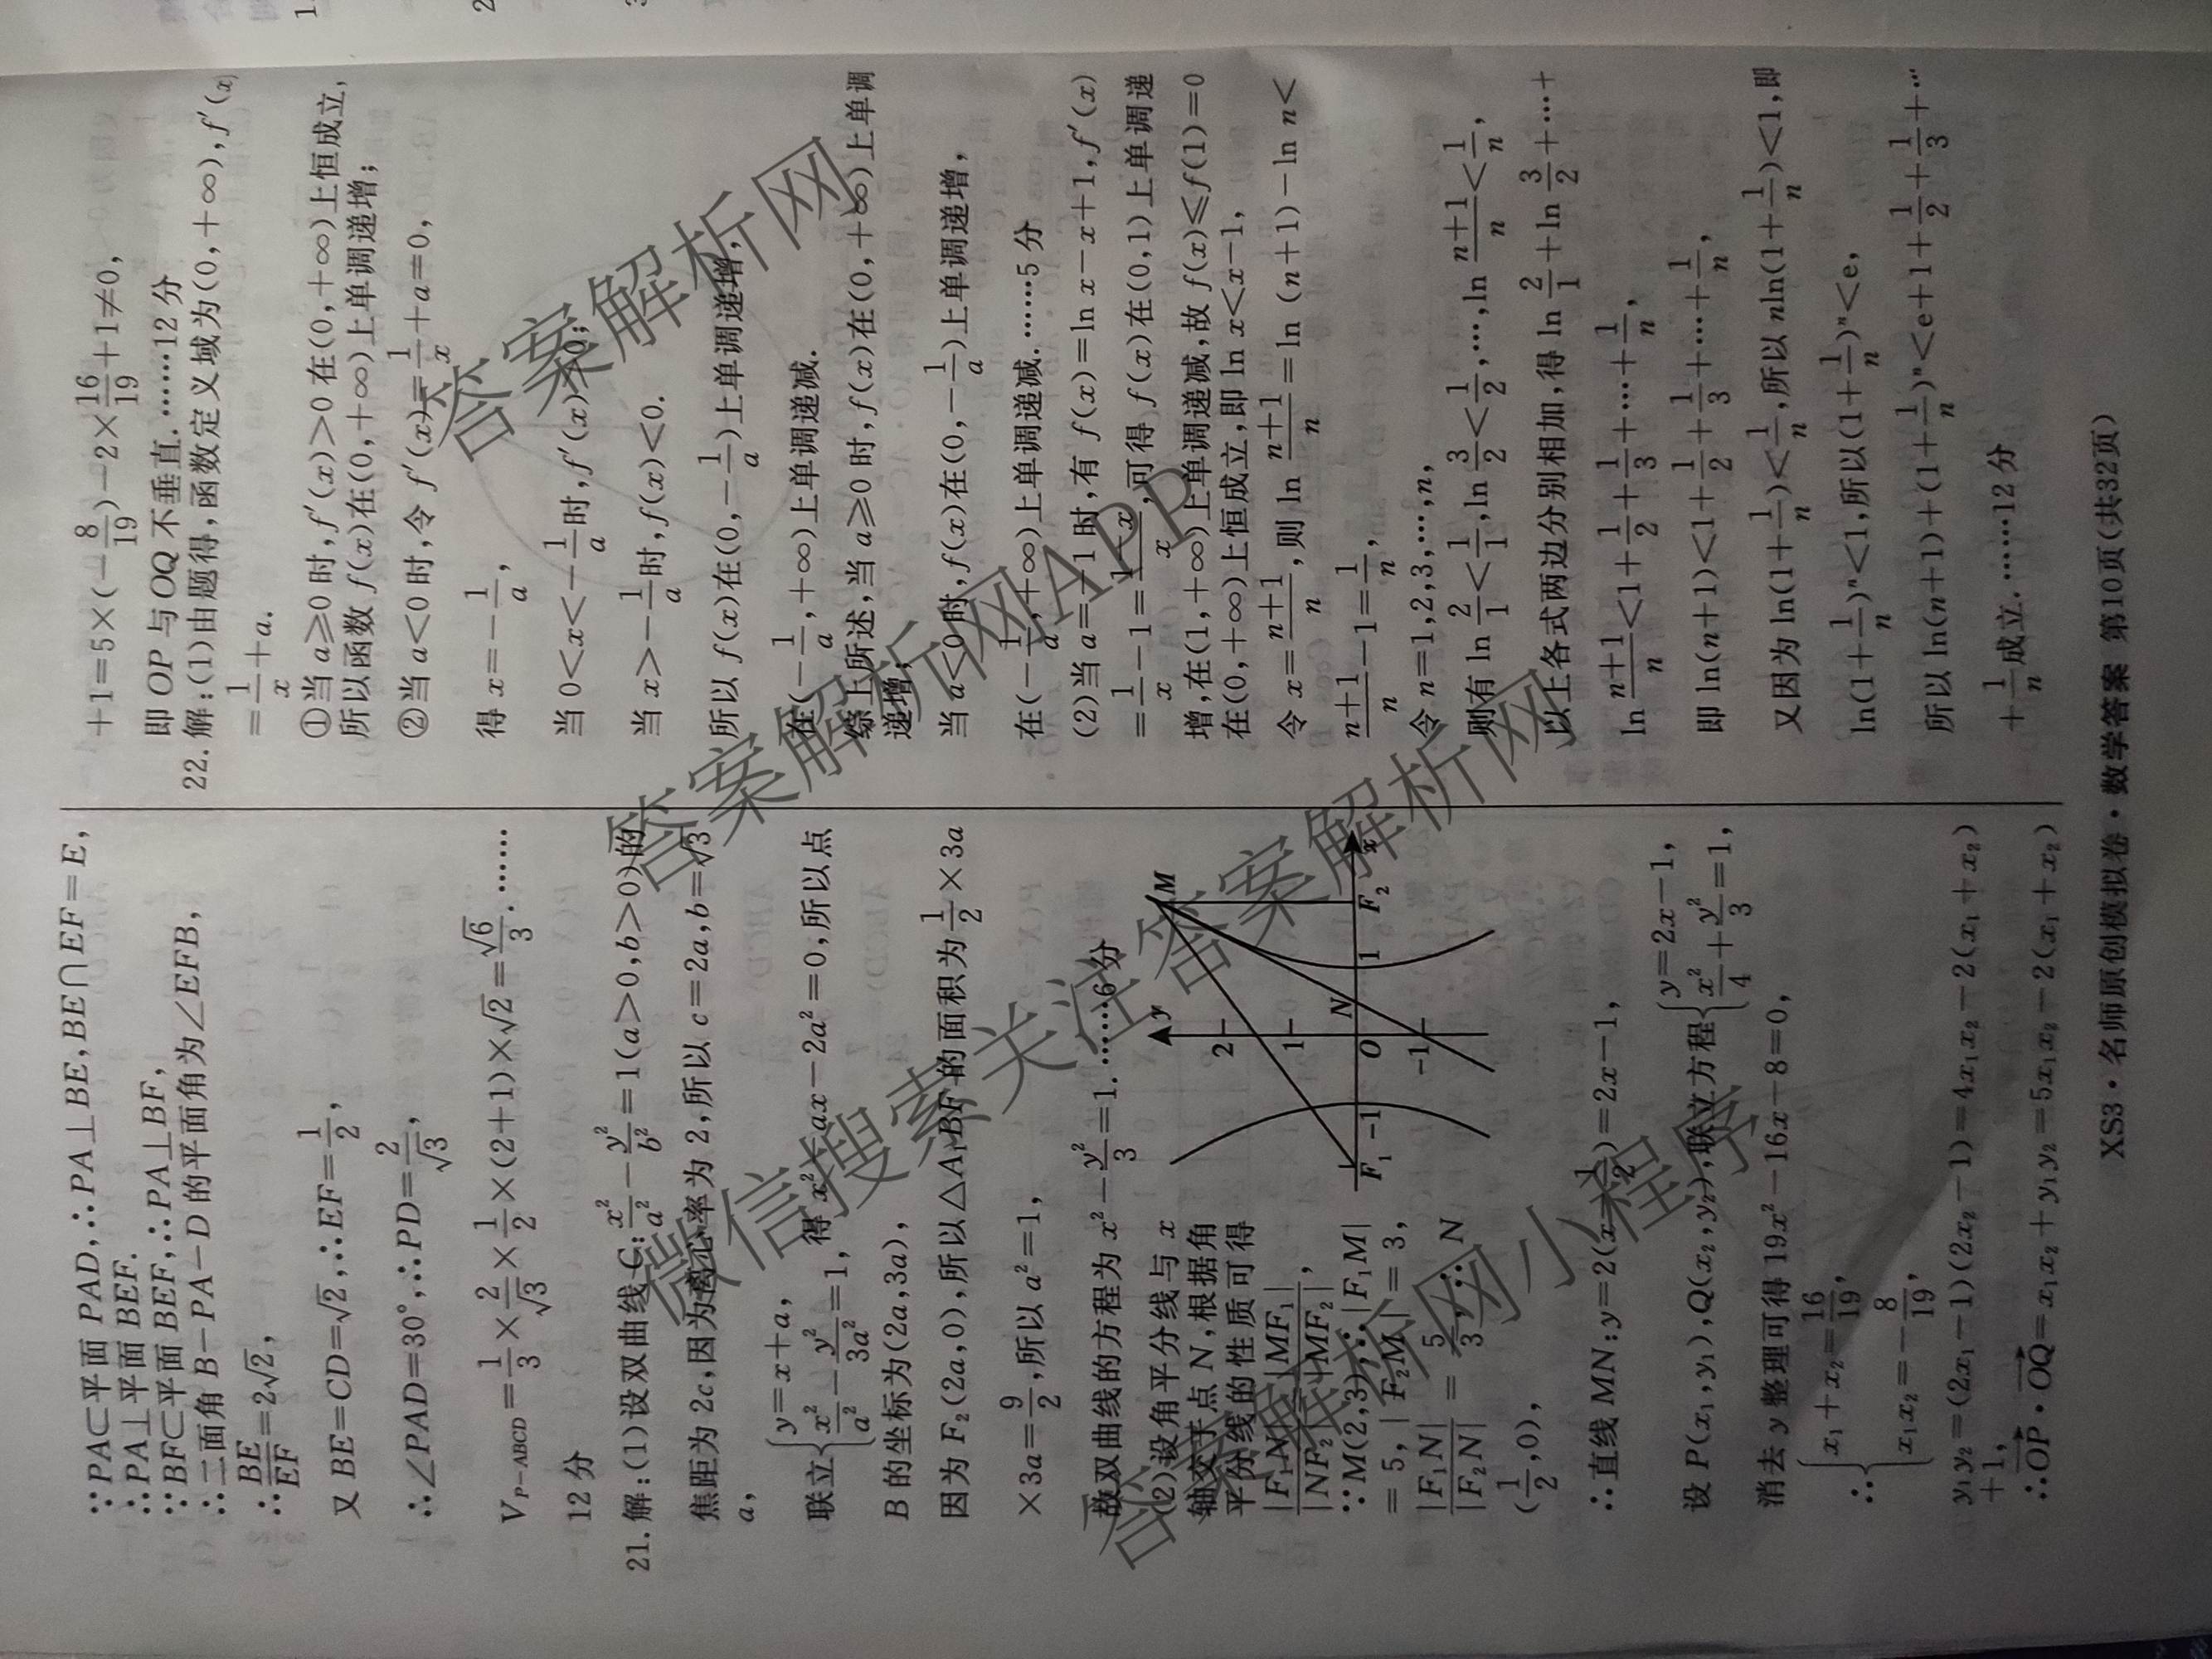 ∵PA⊂平面PAD,∴PA⊥BE,BE∩EF=E,
∴PA⊥平面BEF.
∵BF⊂平面BEF,∴PA⊥BF,
∴二面角B-PA-D的平面角为∠EFB,
∴BE/EF=2√2,
又BE=CD=√2,∴EF=1/2,
∴∠PAD=30°,∴PD=2/√3,
V_{P-ABCD}=1/3×2/√3×1/2×(2+1)×√2=√6/3.……
12分
21.解:(1)设双曲线C:x²/a²-y²/b²=1(a>0,b>0)的
焦距为2c,因为离心率为2,所以c=2a,b=√3
a,
联立{y=x+a, x²/a²-y²/3a²=1, 得x²-ax-2a²=0,所以点
B的坐标为(2a,3a),
因为F₂(2a,0),所以△A₁BF₂的面积为1/2×3a
×3a=9/2,所以a²=1,
故双曲线的方程为x²-y²/3=1.……6分
(2)设角平分线与x
轴交于点N,根据角
平分线的性质可得
|F₁N|/|NF₂|=|MF₁|/|MF₂|,
∵M(2,3),∴|F₁M|
=5,|F₂M|=3,
|F₁N|/|F₂N|=5/3,∴N
(1/2,0),
y
2
1
-1
F₁
-1
O
N
1
F₂
x
M
∴直线MN:y=2(x-1/2)=2x-1,
设P(x₁,y₁),Q(x₂,y₂),联立方程{y=2x-1, x²/4+y²/3=1,
消去y整理可得19x²-16x-8=0,
∴{x₁+x₂=16/19, x₁x₂=-8/19,
y₁y₂=(2x₁-1)(2x₂-1)=4x₁x₂-2(x₁+x₂)
+1,
∴OP·OQ=x₁x₂+y₁y₂=5x₁x₂-2(x₁+x₂)
+1=5×(-8/19)-2×16/19+1≠0,
即OP与OQ不垂直.……12分
22.解:(1)由题得,函数定义域为(0,+∞),f′(x)
=1/x+a.
①当a≥0时,f′(x)>0在(0,+∞)上恒成立,
所以函数f(x)在(0,+∞)上单调递增;
②当a<0时,令f′(x)=1/x+a=0,
得x=-1/a,
当0<x<-1/a时,f′(x)>0;
当x>-1/a时,f(x)<0.
所以f(x)在(0,-1/a)上单调递增,
在(-1/a,+∞)上单调递减.
综上所述,当a≥0时,f(x)在(0,+∞)上单调
递增;
当a<0时,f(x)在(0,-1/a)上单调递增,
在(-1/a,+∞)上单调递减.……5分
(2)当a=-1时,有f(x)=ln x-x+1,f′(x)
=1/x-1=1-x/x,可得f(x)在(0,1)上单调递
增,在(1,+∞)上单调递减,故f(x)≤f(1)=0
在(0,+∞)上恒成立,即ln x<x-1,
令x=n+1/n,则ln n+1/n=ln (n+1)-ln n<
n+1/n-1=1/n,
令n=1,2,3,…,n,
则有ln 2/1<1/1,ln 3/2<1/2,…,ln n+1/n<1/n,
以上各式两边分别相加,得ln 2/1+ln 3/2+…+
ln n+1/n<1+1/2+1/3+…+1/n,
即ln(n+1)<1+1/2+1/3+…+1/n,
又因为ln(1+1/n)<1/n,所以nln(1+1/n)<1,即
ln(1+1/n)ⁿ<1,所以(1+1/n)ⁿ<e,
所以ln(n+1)+(1+1/n)ⁿ<e+1+1/2+1/3+…
+1/n成立.……12分
XS3·名师原创模拟卷·数学答案 第10页(共32页)
答案解析网
答案解析网APP
微信搜索关注答案解析网
答案解析网小程序